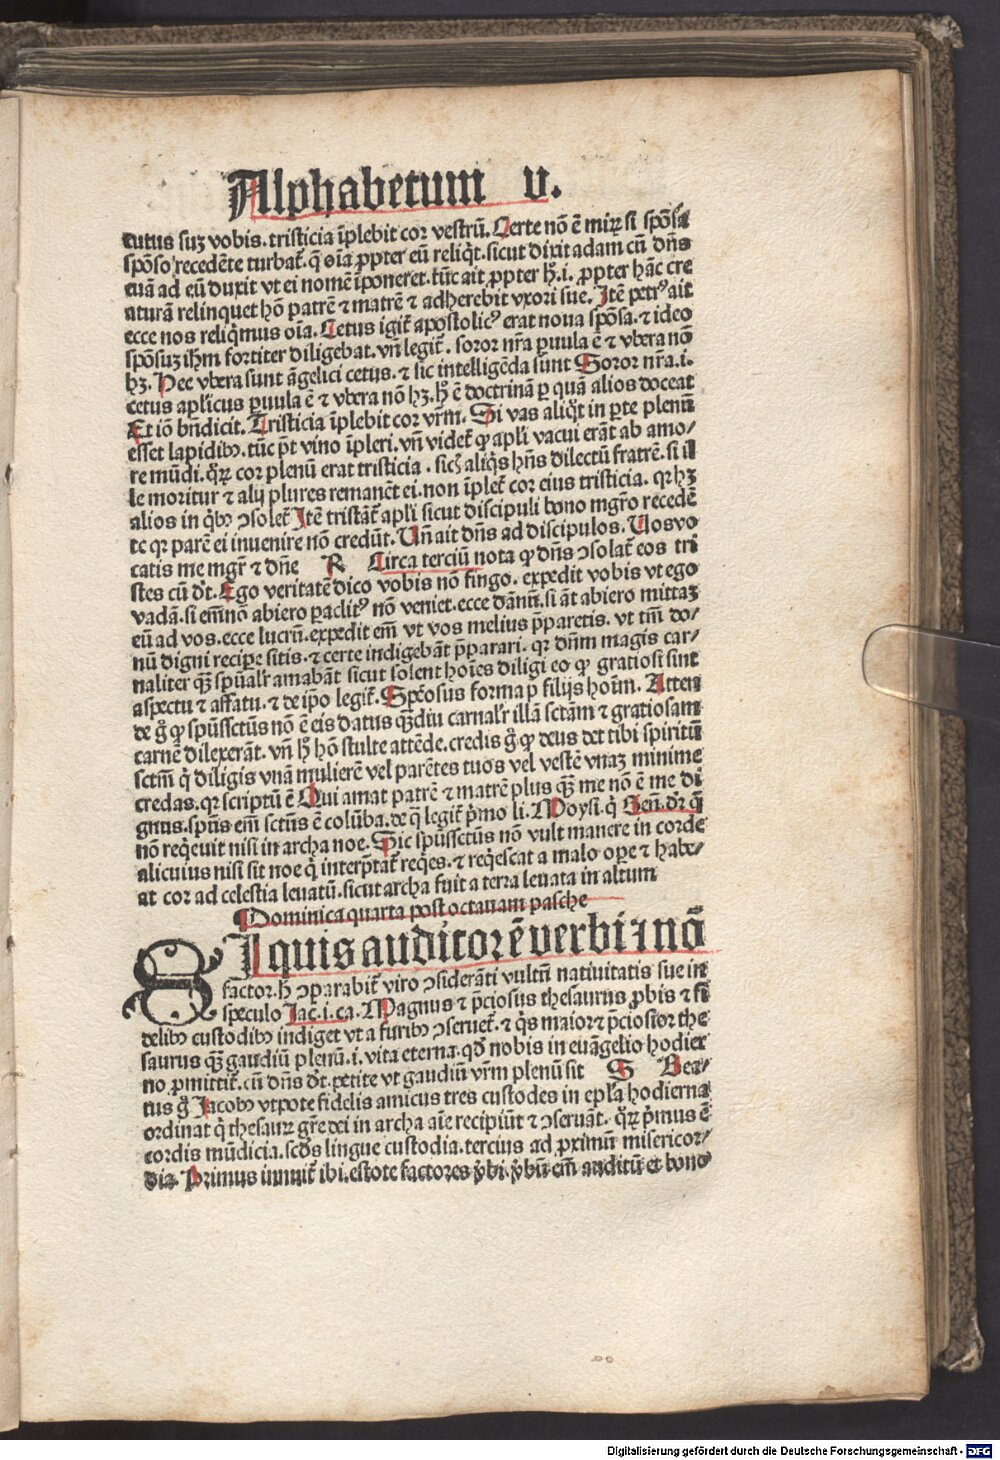 Alphabetum v.
cutus suꝫ vobis. tristicia īplebit cor vestrū. Certe nō ē mirꝝ si spōsa
spōso recedēte turbat᷑. q̄ oīa ꝓpter eū reliq̇t. sicut dixit adam cū dn̄s
euā ad eū duxit vt ei nomē īponeret. tūc ait ꝓpter hͦ. i. ꝓpter hāc cre
aturā relinquet hō patrē ⁊ matrē ⁊ adherebit vxori sue. Itē petrꝰ ait
ecce nos reliq̇mus oīa. Cetus igit᷑ apostolicꝰ erat noua spōsa. ⁊ ideo
spōsuꝫ ihm̄ fortiter diligebat. vn̄ legit᷑. soror nr̄a ꝑuula ē ⁊ vbera nō
hꝫ. Hec vbera sunt āgelici cetus. ⁊ sic intelligēda sunt Soror nr̄a. i.
cetus apl̄icus ꝑuula ē ⁊ vbera nō hꝫ. hͦ ē doctrinā ꝑ quā alios doceat
Et iō bn̄ dicit. Tristicia īplebit cor vr̄m. Si vas aliq̇t in ꝑte plenū
esset lapidibꝰ. tūc p̄t vino īpleri. vn̄ videt᷑ ꝙ apl̄i vacui erāt ab amo/
re mūdi. q̇ꝛꝝ cor plenū erat tristicia. sicͦ aliq̇s hn̄s dilectū fratrē. si il
le moritur ⁊ alij plures remanēt ei. non īplet᷑ cor eius tristicia. qꝛ hꝫ
alios in q̇bꝰ ↄsolet᷑ Itē tristāt᷑ apl̄i sicut discipuli bono mgr̄o recedē
te qꝛ parē ei inuenire nō credūt. Vn̄ ait dn̄s ad discipulos. Vos vo
catis me mgr̄ ⁊ dn̄e R Circa terciū nota ꝙ dn̄s ↄsolat᷑ eos tri
stes cū dt̄. Ego veritatē dico vobis nō fingo. expedit vobis vt ego
vadā. si em̄ nō abiero ꝑaclitꝰ nō veniet. ecce dānū. si āt abiero mittaꝫ
eū ad vos. ecce lucrū. expedit em̄ vt vos melius p̄paretis. vt tm̄ do/
nū digni recipe sitis. ⁊ certe indigebāt p̄parari. qꝛ dn̄m magis car/
naliter qꝫ spūalr̄ amabāt sicut solent hoīes diligi eo ꝙ gratiosi sint
aspectu ⁊ affatu. ⁊ de ip̄o legit᷑. Spēosus forma p̄ filijs hoīm. Atten
de gͦ ꝙ spūssctūs nō ē eis datus qꝫdiu carnalr̄ illā sctām ⁊ gratiosam
carnē dilexerāt. vn̄ hͦ hō stulte attēde. credis gͦ ꝙ deus det tibi spiritū
sctm̄ q̇ diligis vnā mulierē vel parētes tuos vel vestē vnaꝫ minime
credas. qꝛ scriptū ē Qui amat patrē ⁊ matrē plus qꝫ me nō ē me di
gnus. spūs em̄ sctūs ē colūba. de q̄ legit᷑ p̄mo li. Moysi. q̇ Gen̄. dr̄ q̄
nō req̇euit nisi in archa noe. Sic spūssctūs nō vult manere in corde
alicuius nisi sit noe q̇ interp̄tat᷑ req̇es. ⁊ req̇escat a malo oꝑe ⁊ habe/
at cor ad celestia leuatū. sicut archa fuit a terra leuata in altum
Dominica quarta post octauam pasche
SI quis auditor ē verbi ⁊ nō
factor. hͦ ↄparabit᷑ viro ↄsiderāti vultū natiuitatis sue in
speculo Jac̄. i. ca. Magnus ⁊ p̄ciosus thesaurus ꝓbis ⁊ fi
delibꝰ custodibꝰ indiget vt a furibꝰ ↄseruet᷑. ⁊ q̇s maior ⁊ p̄ciosior the
saurus qꝫ gaudiū plenū. i. vita eterna. qd̄ nobis in euāgelio hodier
no ꝓmittit᷑. cū dn̄s dt̄. petite vt gaudiū vr̄m plenū sit S Bea/
tus gͦ Jacobꝰ vtpote fidelis amicus tres custodes in epl̄a hodierna
ordinat q̇ thesaurꝝ gr̄e dei in archa aīe recipiūt ⁊ ↄseruāt. q̇ꝛꝝ p̄mus ē
cordis mūdicia. scd̄s lingue custodia. tercius ad ꝓximū misericor/
dia. Primus innuit᷑ ibi. estote factores v̄bi. v̄bū em̄ auditū et bono
Digitalisierung gefördert durch die Deutsche Forschungsgemeinschaft - DFG